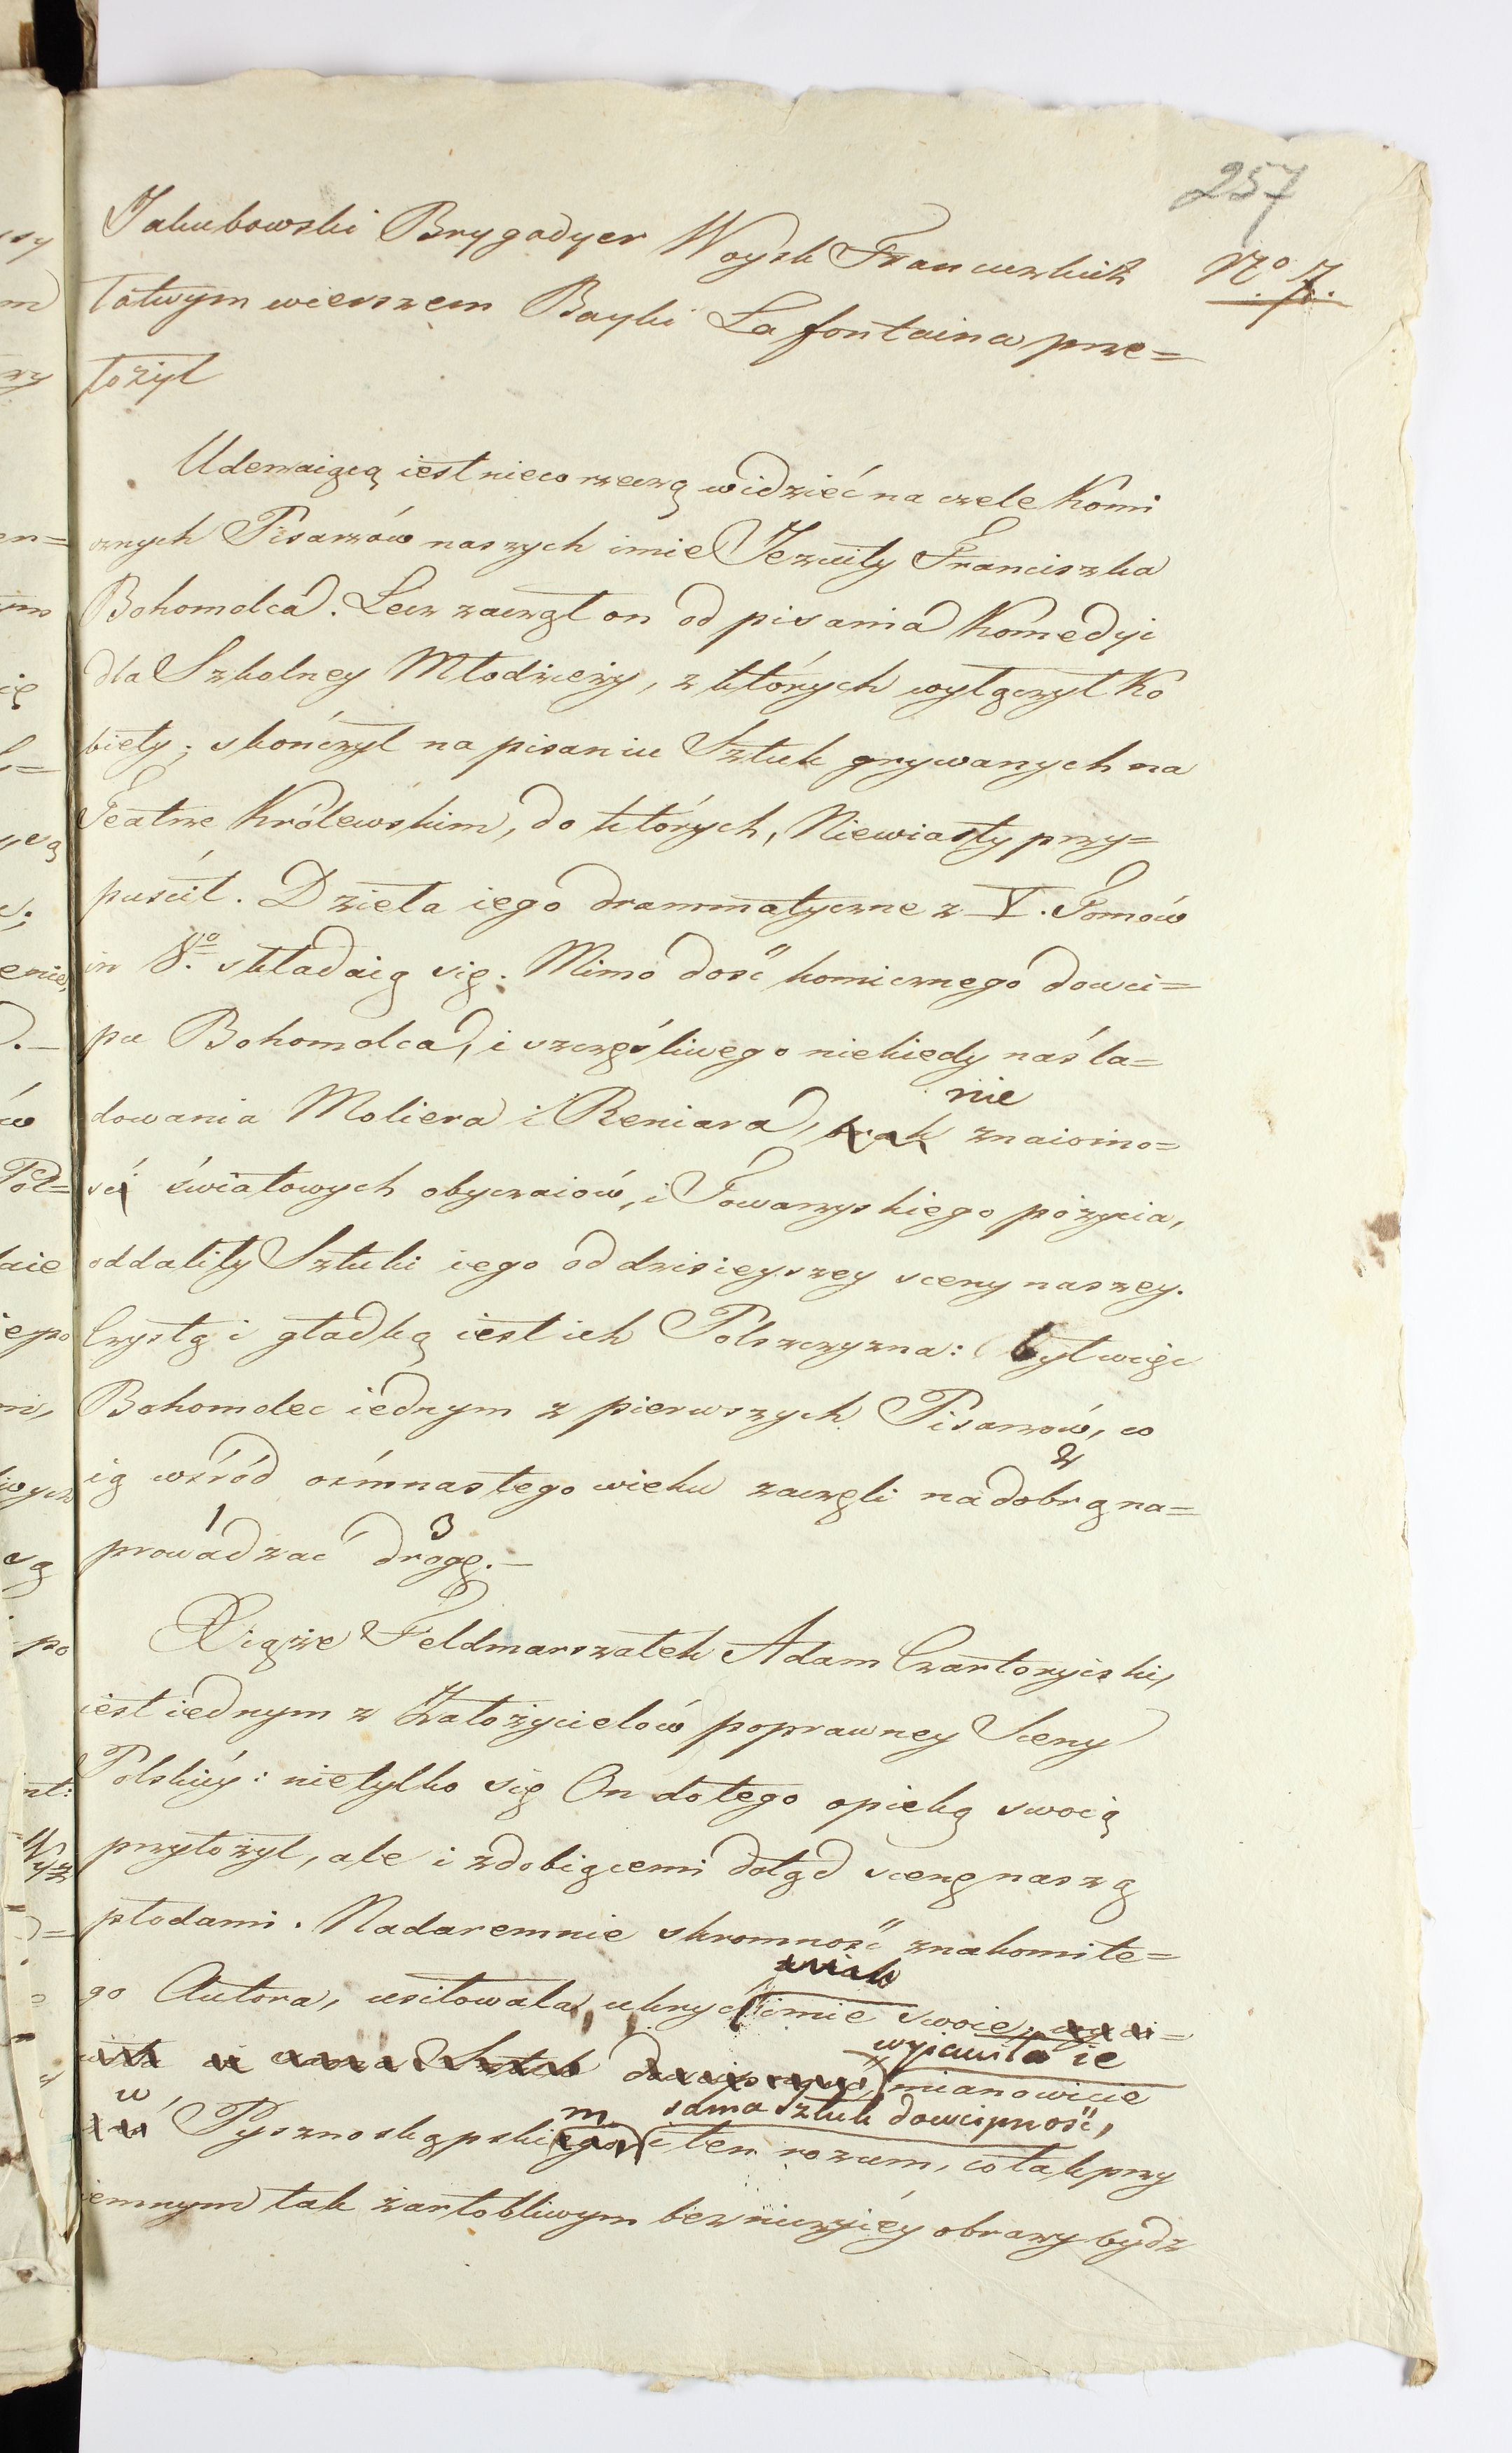 257
Jakubowski Brygadyer Woysk Francuzkich
N<sup>o</sup> 7.
łatwym wierszem Bayki Lafontaina prze=
łożył
Uderzaiącą iest nieco rzeczą widzieć na czele Komi
cznych Pisarzów naszych imie Jezuity Franciszka
Bohomolca. Lecz zaczął on od pisania Komedyi
dla Szkolney Młodzieży, z których wyłączył Ko
biety; skończył na pisaniu Sztuk grywanych na
Teatrze Królewskim, do których, Niewiasty przy=
puścił. Dzieła iego drammatyczne z V. Tomów
in 8<sup>o</sup>. składaią się. Mimo dość komicznego dowci=
pu Bohomolca, i szczęśliwego niekiedy naśla=
nie
dowania Moliera i Reniara, brak znaiomo=
ści światowych obyczaiów, i Towarzyskiego pożycia,
oddaliły Sztuki iego od dzisieyszey sceny naszey.
Czystą i gładką iest ich Polszczyzna: był więc
Bohomolec iednym z pierwszych Pisarzów, co
2
ią wśród ośmnastego wieku zaczęli na dobrą na=
1 3
prowadzać drogę.—
Xiąże Feldmarszałek Adam Czartoryiski,
iest iednym z Założycielów poprawney Sceny
Polskiéy: nietylko się On do tego opieką swoią
przyłożył, ale i zdobiącemi dotąd scenę naszą
płodami. Nadaremnie skromność znakomite=
go Autora, usiłowała ukryć imie swoie,
wyiawiła ie
mianowicie
w m sama sztuk dowcipność,
Pysznoskąpski i ten rozum, co tak przy
iemnym tak żartobliwym bez niczyiéy obrazy bydź